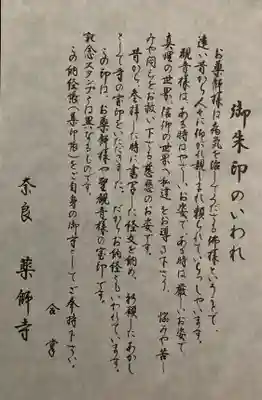 御朱印のいわれ
お薬師様は病気を治して下さる佛様というまで、
遠い昔から人々に仰がれ親しまれ頼られていらっしゃいます。
観音様は、ある時はやさしいお姿で、ある時は厳しいお姿で
真理の世界、信仰の世界へ私達をお導き下さり、悩みや苦し
みや悶えをお救い下さる慈悲のお姿です。
昔から参拝した時に書写した経文を納め、祈願したあかし
として寺の宝印をいただきました。だからお納経ともいわれています。
この印は、お薬師様や聖観音様の宝印です。
記念スタンプとは異なるものです。
この納経帳（集印帳）をご自身の御守としてご奉持下さい。
合掌
奈良 薬師寺